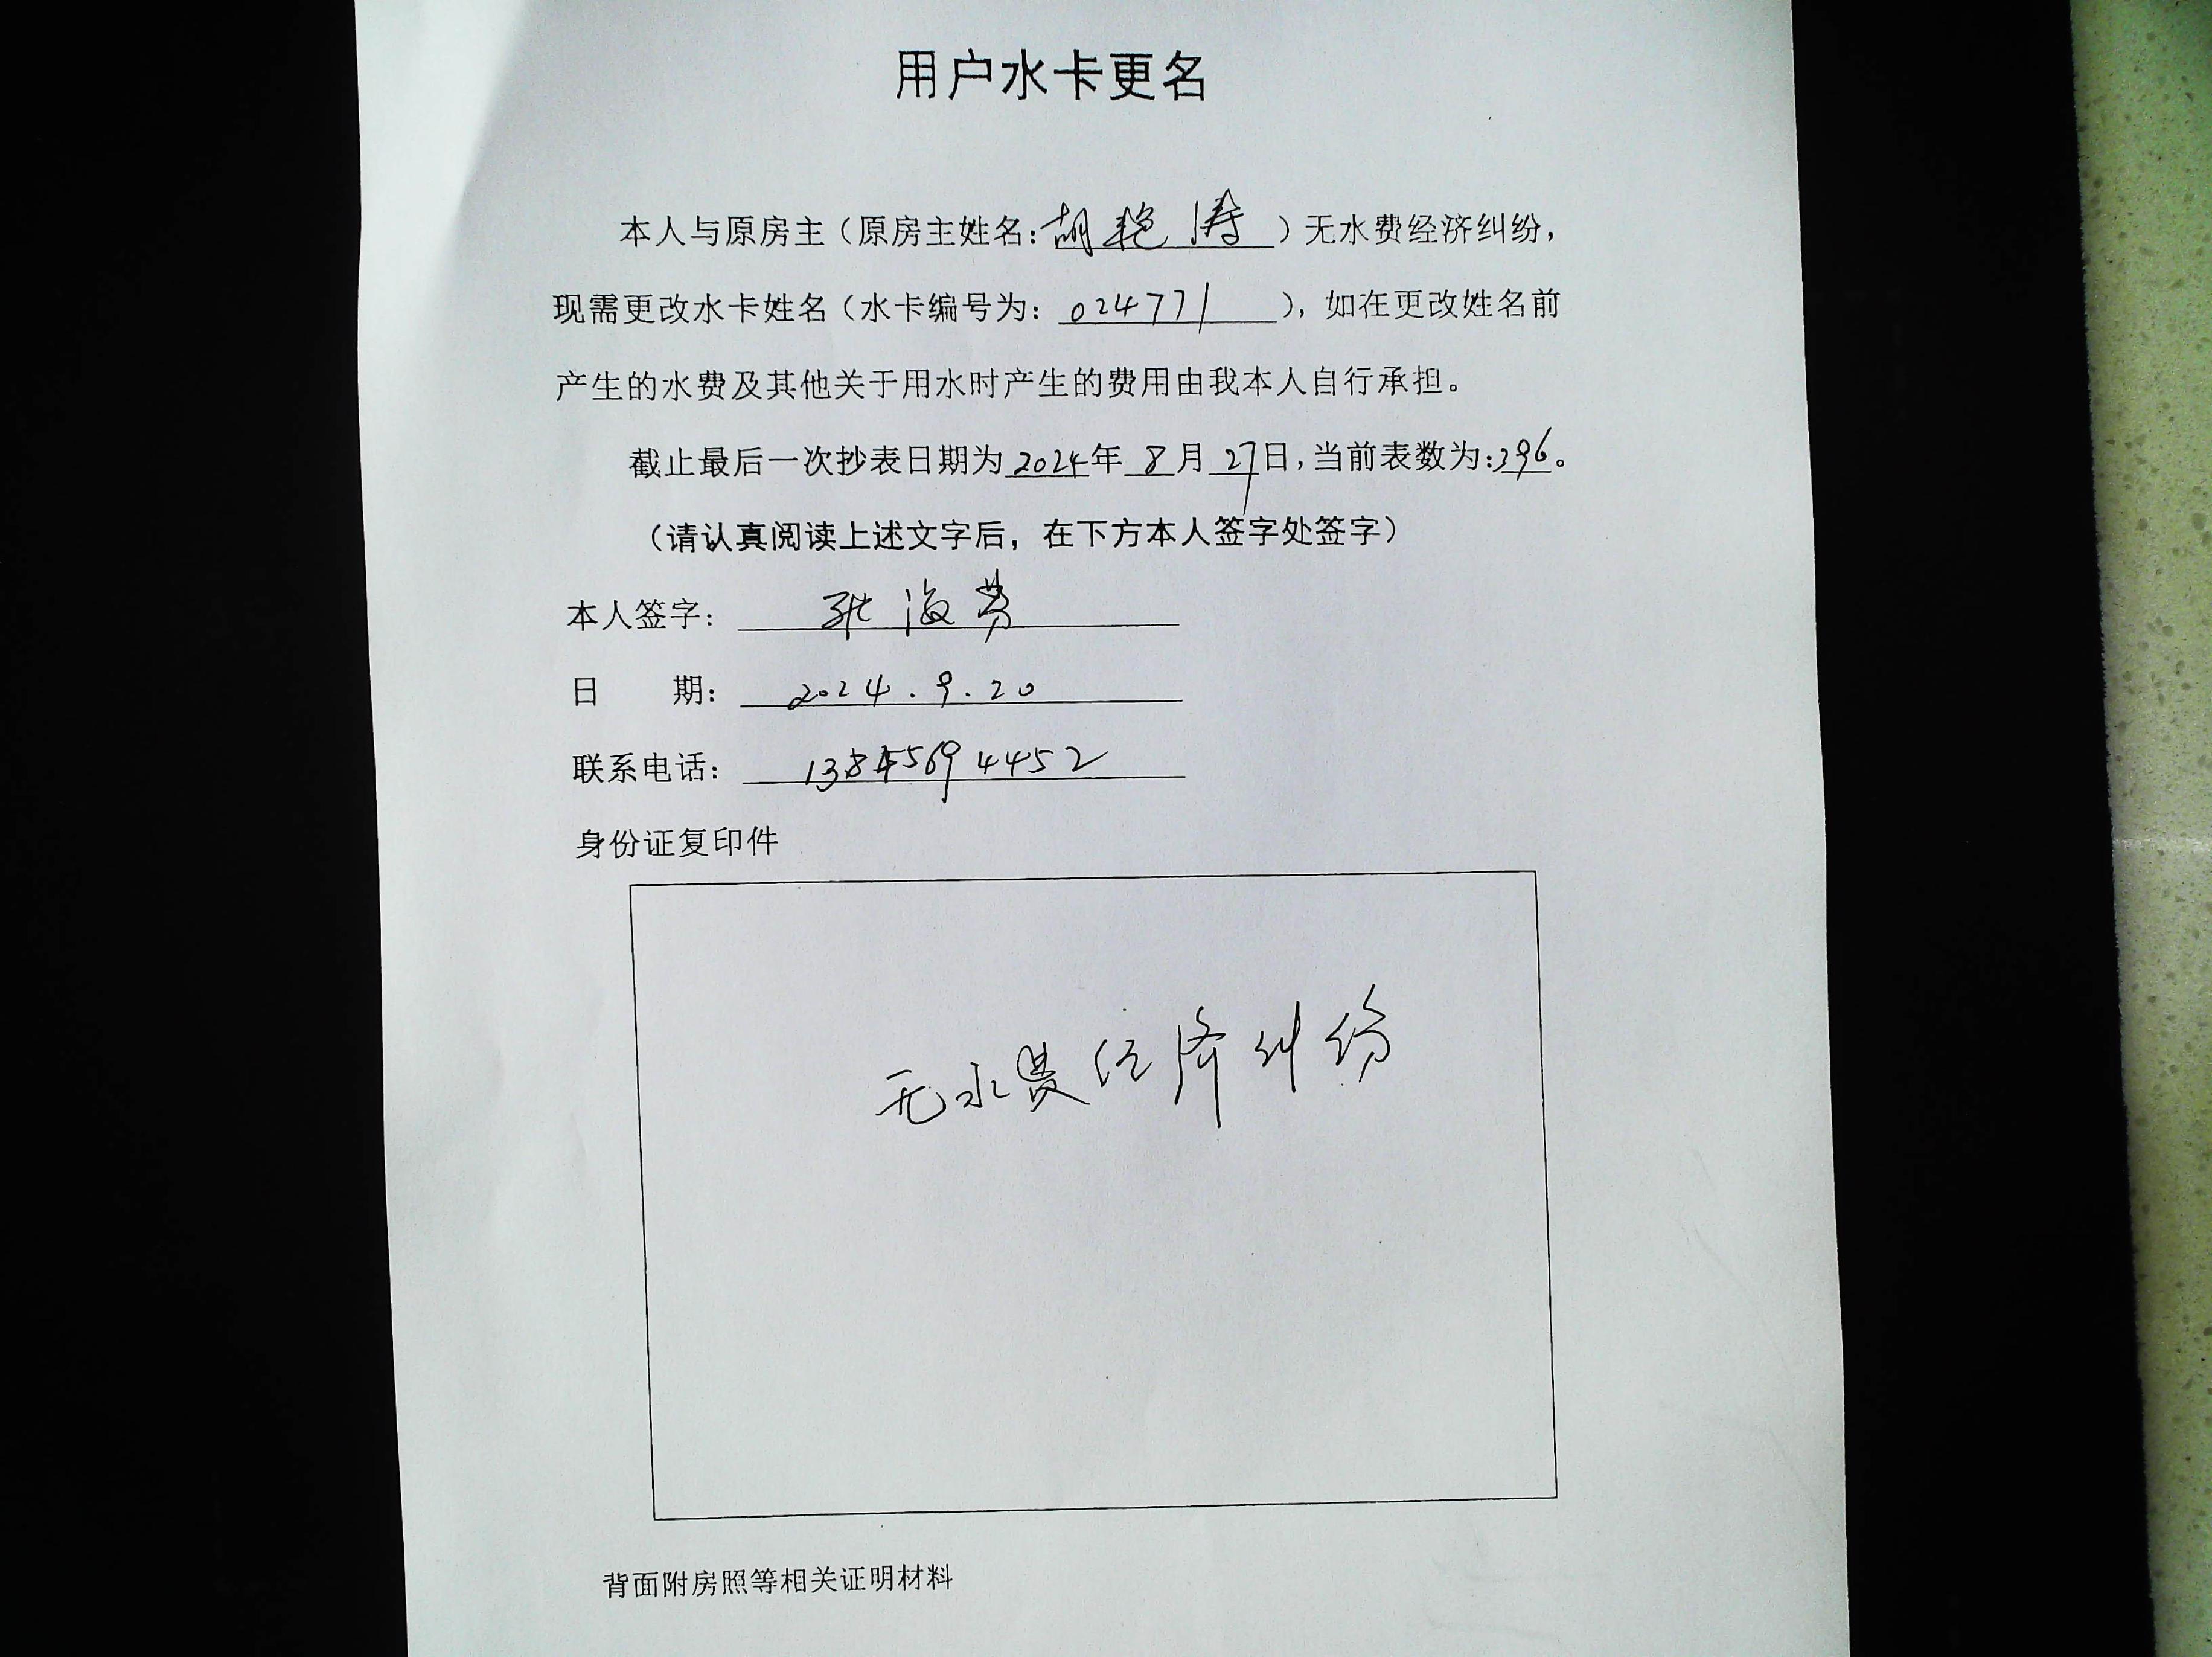 用户水卡更名
本人与原房主（原房主姓名：胡艳涛）无水费经济纠纷，
现需更改水卡姓名（水卡编号为：024771），如在更改姓名前
产生的水费及其他关于用水时产生的费用由我本人自行承担。
截止最后一次抄表日期为2024年8月27日，当前表数为：396。
（请认真阅读上述文字后，在下方本人签字处签字）
本人签字：张海
日 期：2024.9.20
联系电话：13845694452
身份证复印件
无水费经济纠纷
背面附房照等相关证明材料